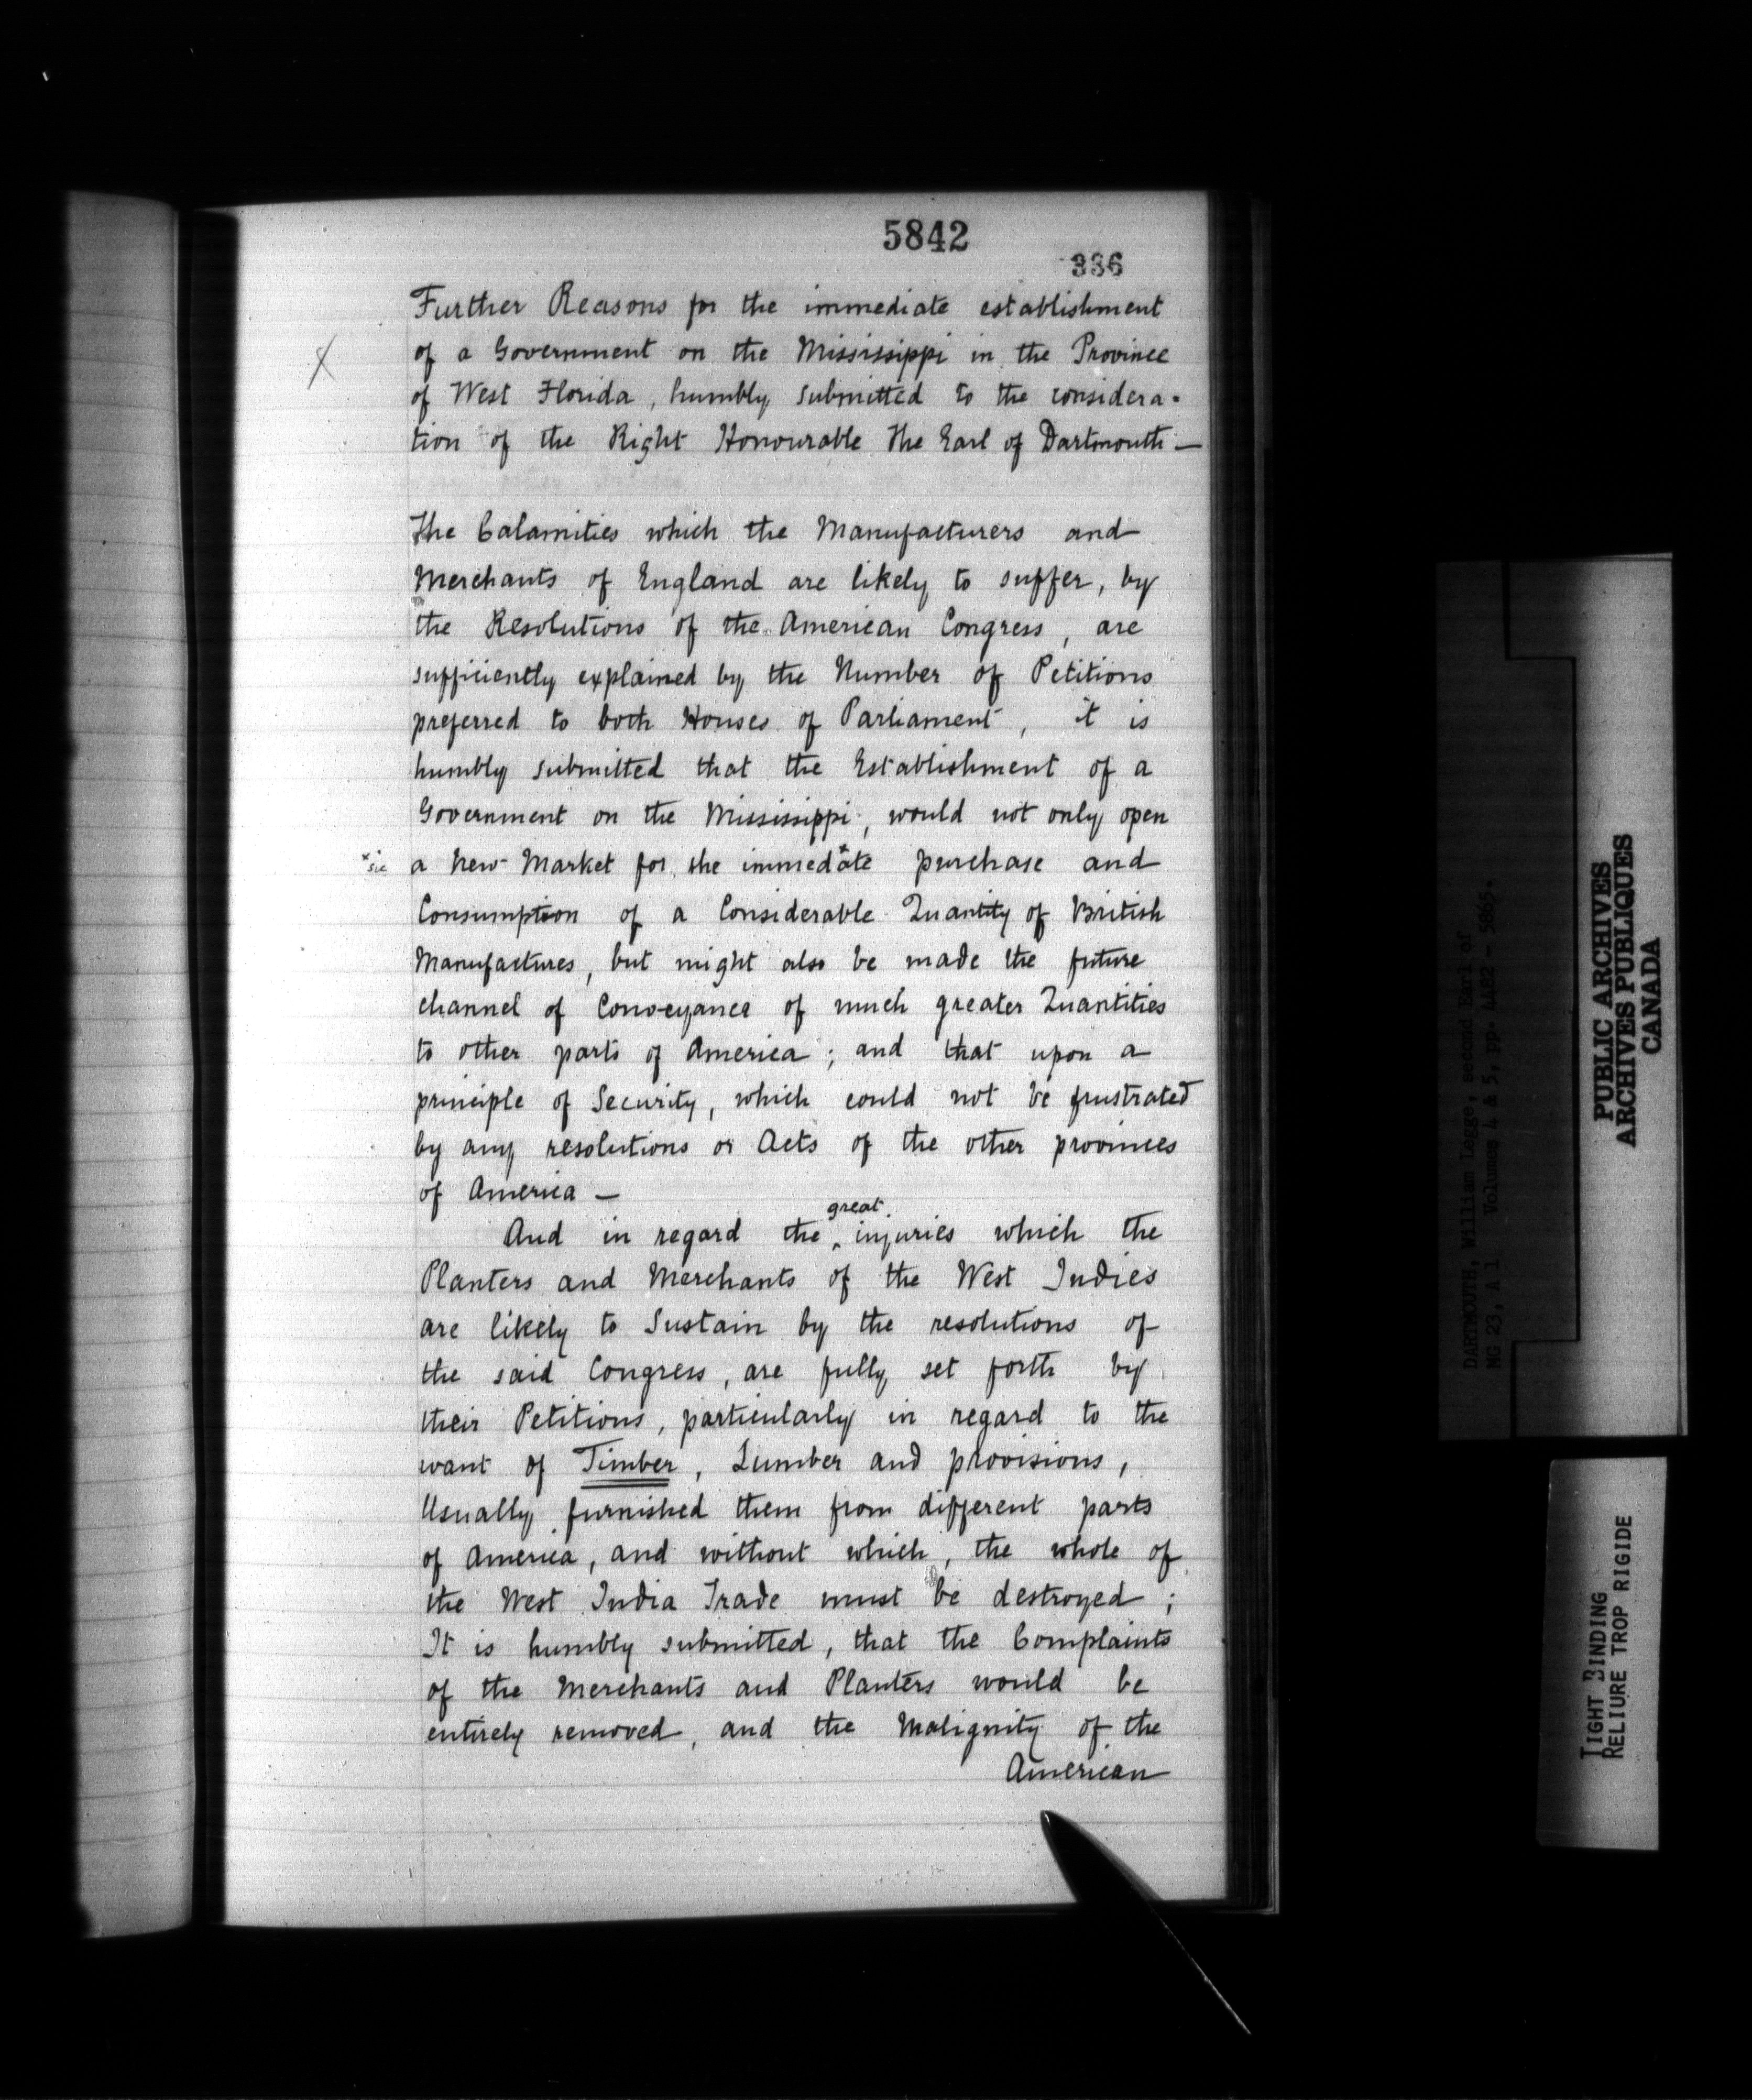 5842
336
Further Reasons for the immediate establishment
of a Government on the Mississippi in the Province
of West Florida, humbly submitted to the considera-
tion of the Right Honourable The Earl of Dartmouth —
The Calamities which the Manufacturers and
Merchants of England are likely to suffer, by
the Resolutions of the American Congress, are
sufficiently explained by the Number of Petitions
preferred to both Houses of Parliament, it is
humbly submitted that the Establishment of a
Government on the Mississippi, would not only open
x sic a New Market for the immedxate purchase and
Consumption of a Considerable Quantity of British
Manufactures, but might also be made the future
channel of Conveyance of much greater Quantities
to other parts of America; and that upon a
principle of Security, which could not be frustrated
by any resolutions or Acts of the other provinces
of America —
And in regard the great injuries which the
Planters and Merchants of the West Indies
are likely to Sustain by the resolutions of
the said Congress, are fully set forth by
their Petitions, particularly in regard to the
want of Timber, Lumber and provisions,
Usually furnished them from different parts
of America, and without which, the whole of
the West India Trade must be destroyed;
It is humbly submitted, that the Complaints
of the Merchants and Planters would be
entirely removed, and the Malignity of the
American
DARTMOUTH, William Legge, second Earl of
MG 23, A 1 Volumes 4 & 5, pp. 4482 - 5865.
PUBLIC ARCHIVES
ARCHIVES PUBLIQUES
CANADA
TIGHT BINDING
RELIURE TROP RIGIDE